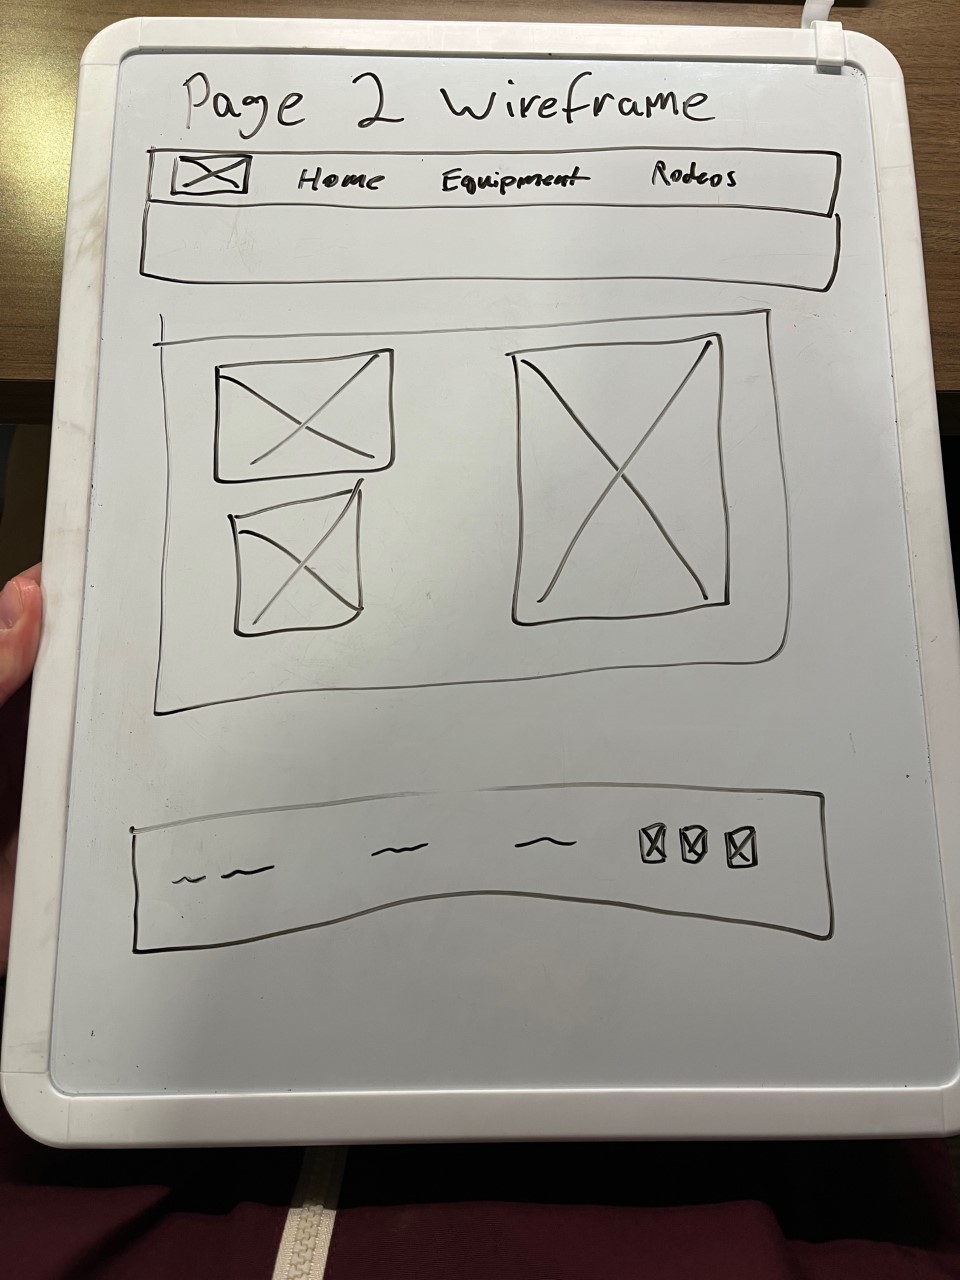 Page 2 Wireframe
Home Equipment Rodeos